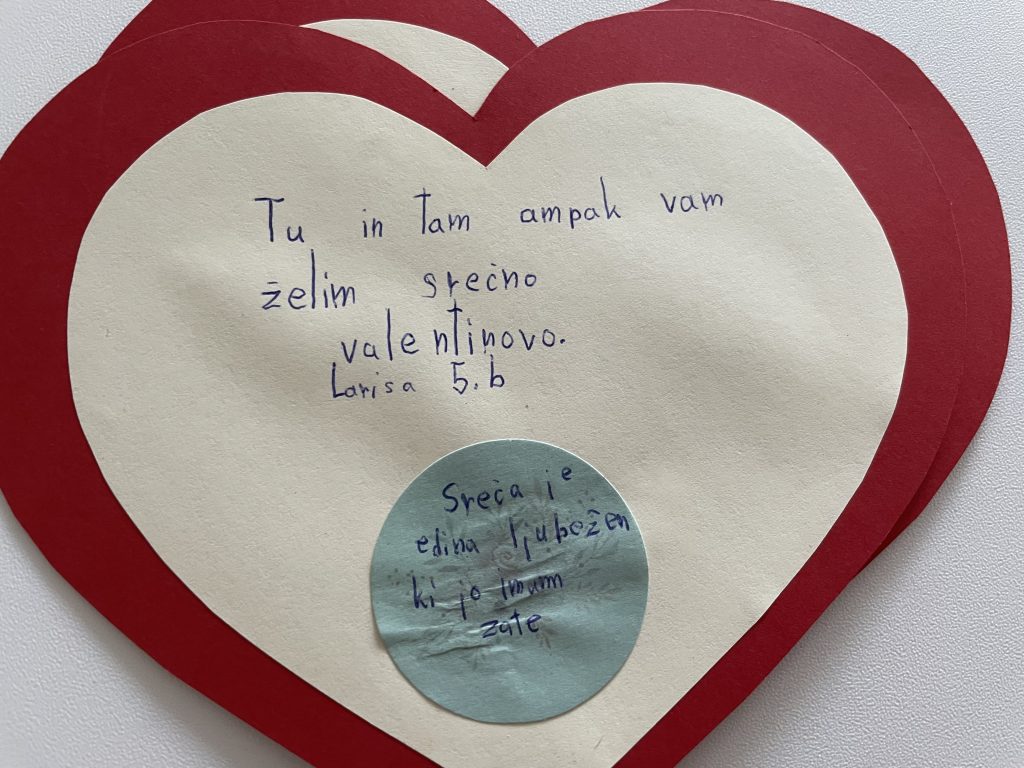 Tu in tam ampak vam
želim srečno
valentinovo.
Larisa 5.b
Sreča je
edina ljubežen
ki jo imum
zate